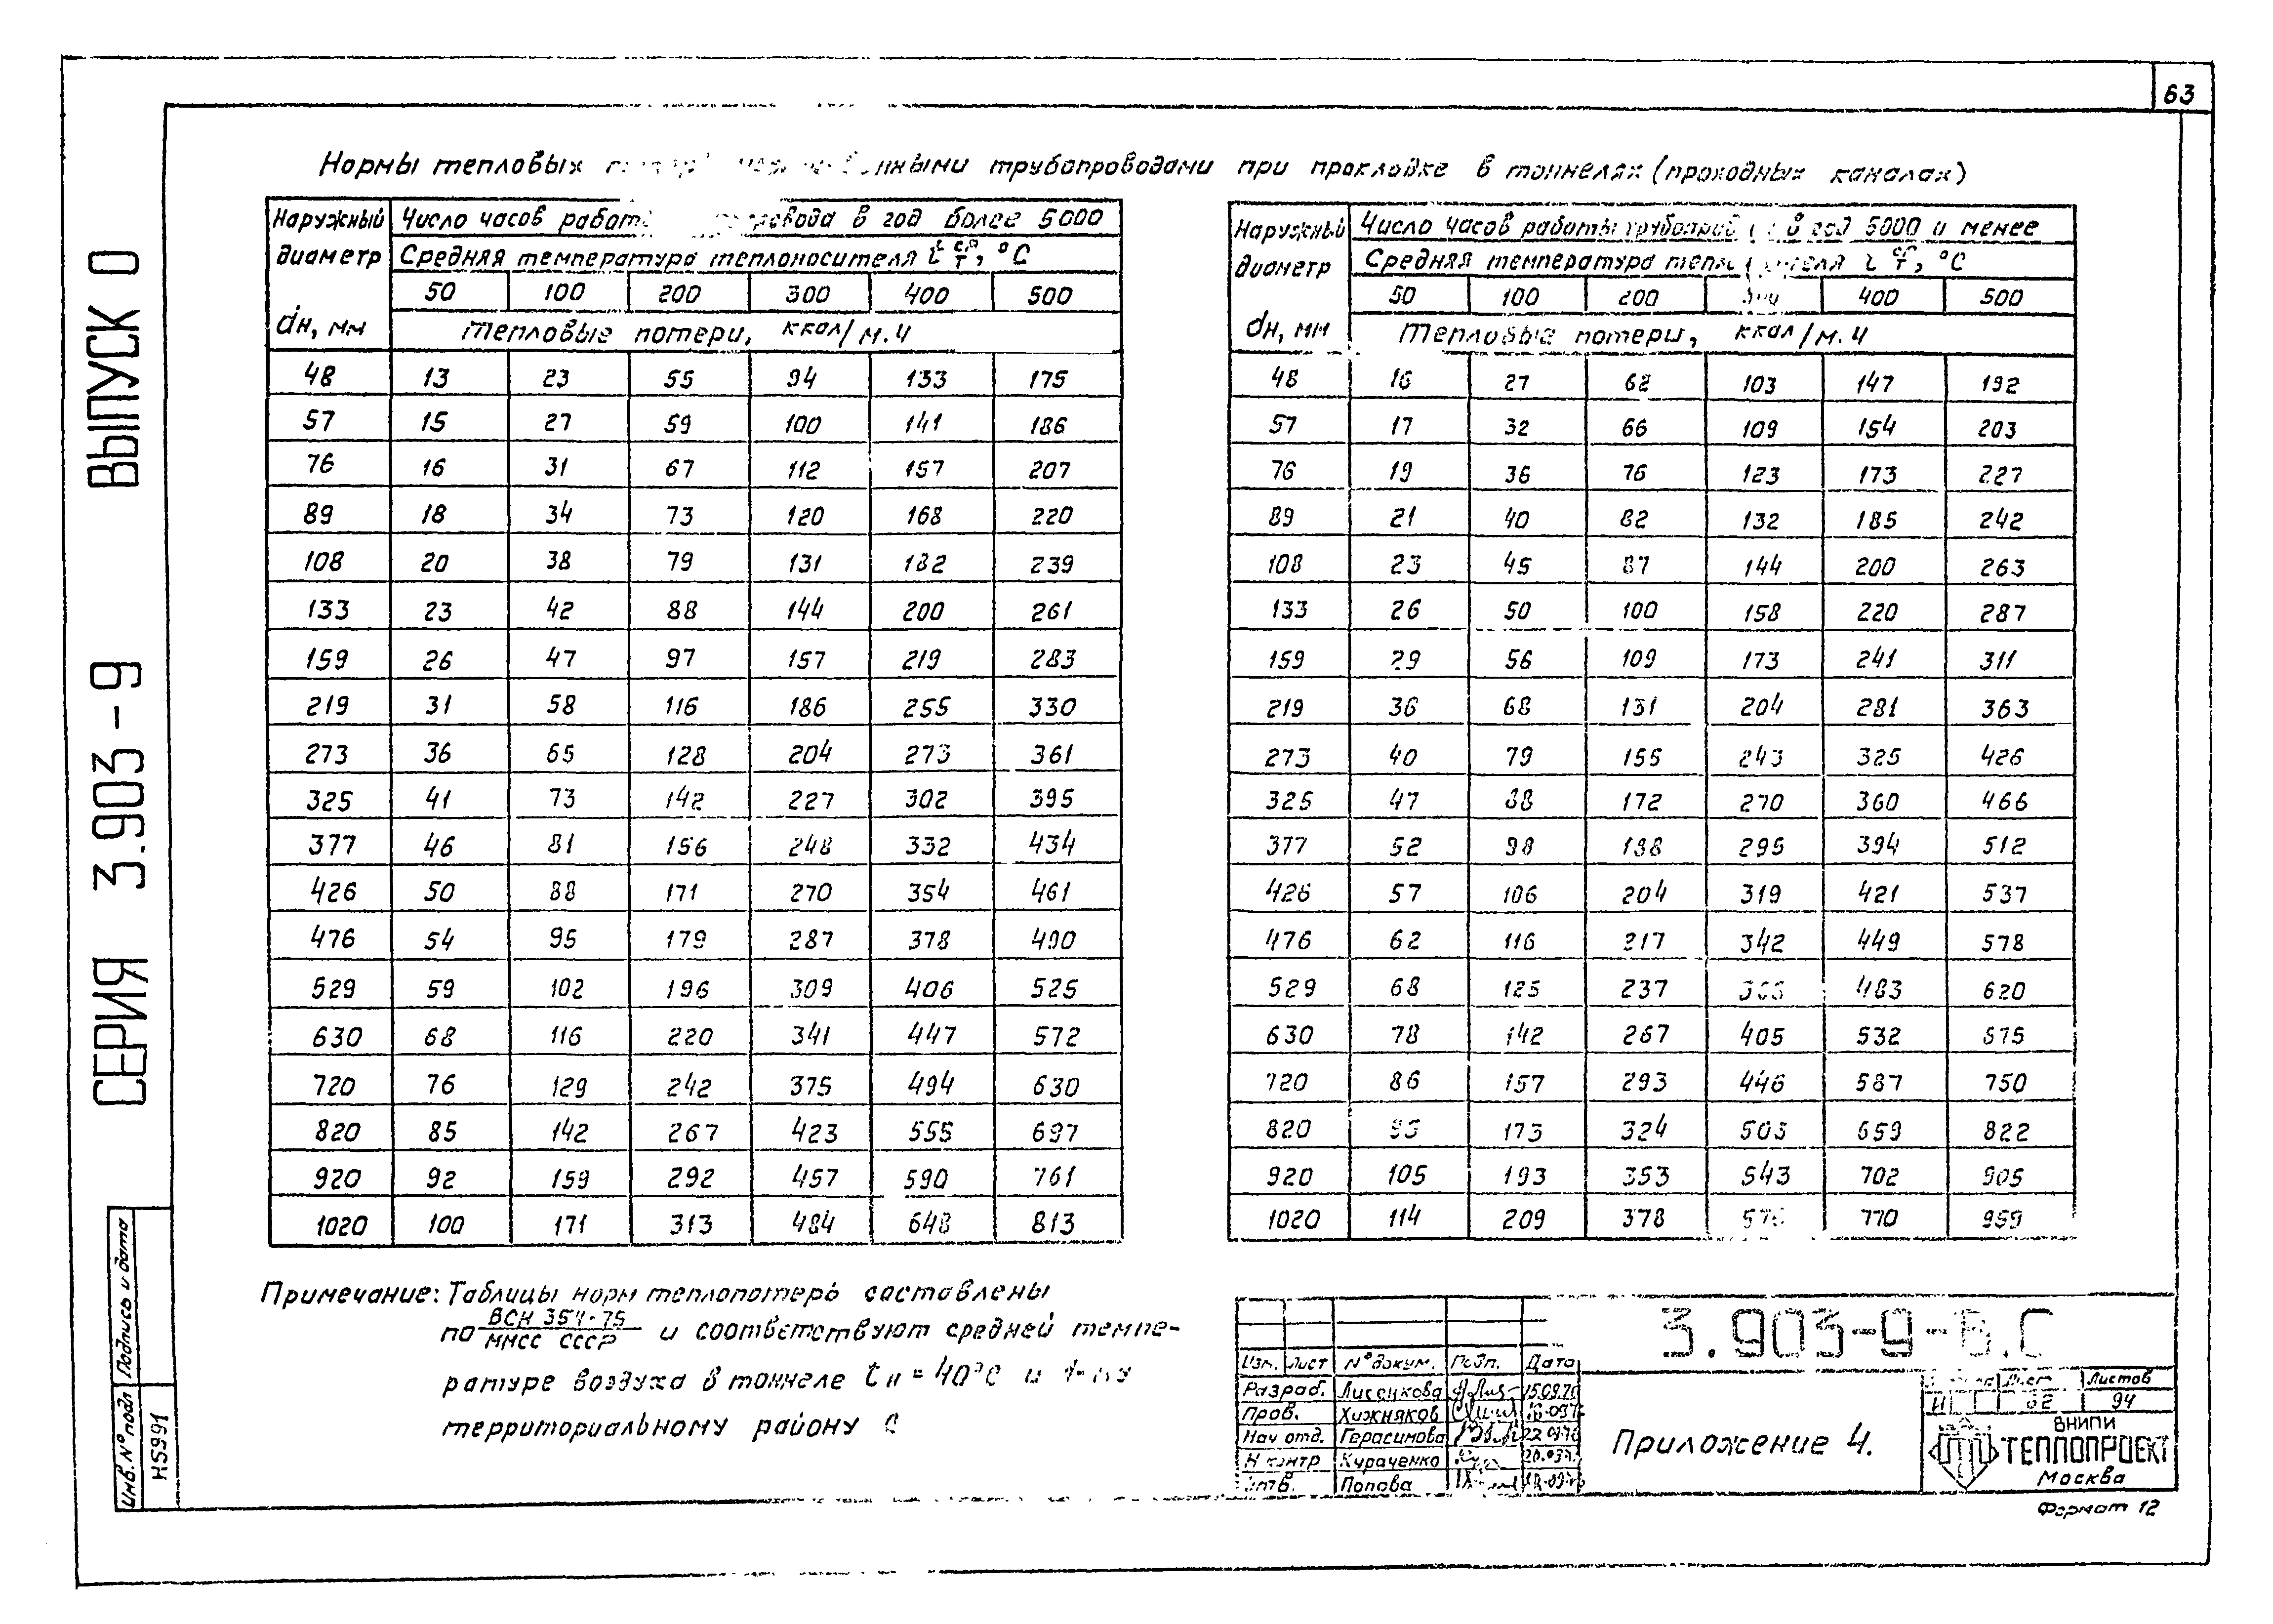 63
Нормы тепловых трубопроводами при прокладке в тоннелях (проходных каналах)
Наружный диаметр dн, мм
Число часов в год более 5000
Средняя температура теплоносителя t ср т, °С
50 100 200 300 400 500
Тепловые потери, ккал/м.ч
48 13 23 55 94 133 175
57 15 27 59 100 141 186
76 16 31 67 112 157 207
89 18 34 73 120 168 220
108 20 38 79 131 182 239
133 23 42 88 144 200 261
159 26 47 97 157 219 283
219 31 58 116 186 255 330
273 36 65 128 204 273 361
325 41 73 142 227 302 395
377 46 81 156 248 332 434
426 50 88 171 270 354 461
476 54 95 179 287 378 490
529 59 102 196 309 406 525
630 68 116 220 341 447 572
720 76 129 242 375 494 630
820 85 142 267 423 555 697
920 92 159 292 457 590 761
1020 100 171 313 484 648 813
Наружный диаметр dн, мм
Число часов работы в год 5000 и менее
Средняя температура t ср т, °С
50 100 200 400 500
Тепловые потери, ккал/м.ч
48 16 27 62 103 147 192
57 17 32 66 109 154 203
76 19 36 76 123 173 227
89 21 40 82 132 185 242
108 23 45 87 144 200 263
133 26 50 100 158 220 287
159 29 56 109 173 241 311
219 36 68 131 204 281 363
273 40 79 155 243 325 426
325 47 88 172 270 360 466
377 52 98 188 295 394 512
426 57 106 204 319 421 537
476 62 116 217 342 449 578
529 68 125 237 483 620
630 78 142 267 405 532 675
720 86 157 293 446 587 750
820 173 324 503 659 822
920 105 193 353 543 702 905
1020 114 209 378 770 959
Примечание: Таблицы норм теплопотерь составлены
по ВСН 354-75 / ММСС СССР и соответствуют средней темпе-
ратуре воздуха в тоннеле tн = 40°С и
территориальному району
СЕРИЯ 3.903-9 ВЫПУСК 0
Инв. N° подл Подпись и дата
H5991
3.903-9-
Изм. Лист N° докум. Подп. Дата
Разраб. Лисенкова
Пров. Хижняков
Нач отд. Герасимова
Н контр Кураченко
Попова
Приложение 4.
Листов
94
ВНИПИ
ТЕПЛОПРОЕКТ
Москва
Формат 12